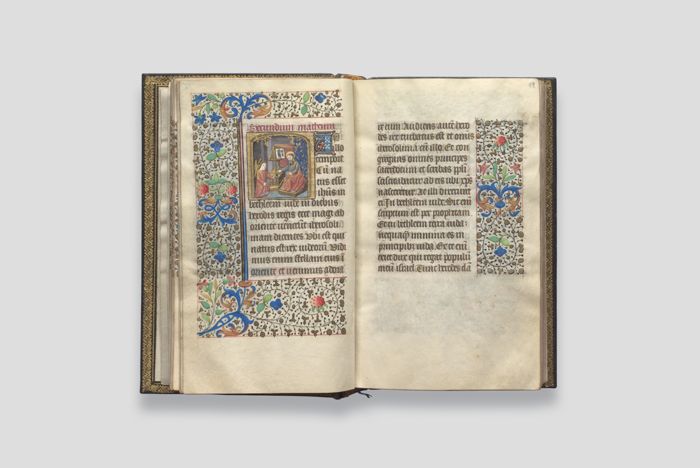 Secundum matheum
illo
tempore
Cū na
tus esset
ihūs in
bethleem iude in diebus
herodis regis ecce magi ab
oriente venerūt iherosoli
mam dicentes Vbi est qui
natus est rex iudeorū Vidi
mus enim stellam eius ī
oriente et venimus adora
re eum Audiens autē hero
des rex turbatus est et omīs
iherosolima cū illo. Et con
gregans omnes principes
sacerdotum et scribas ppli
sciscitabatur ab eis ubi xp̄s
nasceretur At illi dixerunt
ei In bethleem iude. Sic em̄
scriptum est per prophetam
Et tu bethleem terra iuda
nequaq̄ minima es in
principib iuda Ex te em̄
exiet dux qui regat populū
meū israel Tunc herodes clā